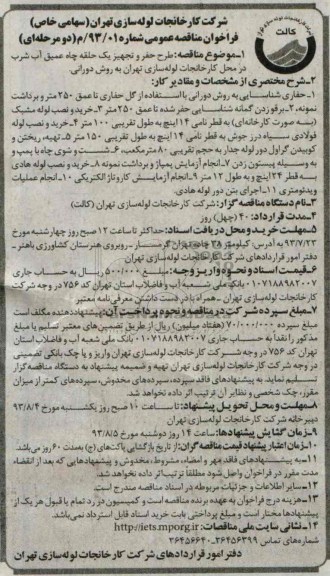 شرکت کارخانجات لوله سازی تهران (سهامی خاص)
فراخوان مناقصه عمومی شماره ۹۳/۰۱/م (دو مرحله‌ای)
کالت
۱-موضوع مناقصه: طرح حفر و تجهیز یک حلقه چاه عمیق آب شرب
در محل کارخانجات لوله سازی تهران به روش دورانی
۲-شرح مختصری از مشخصات و مقادیر کار:
۱-حفاری شناسایی به روش دورانی با استفاده از گل حفاری تا عمق ۲۵۰ متر و برداشت
نمونه، ۲-برقو زدن گمانه شناسایی حفر شده تا عمق ۲۵۰ متر ۳-خرید و نصب لوله مشبک
(بصورت کارخانه‌ای) به قطر نامی ۱۴ اینچ به طول تقریبی ۱۰۰ متر ۴-خرید و نصب لوله
فولادی سیاه درز جوش به قطر نامی ۱۴ اینچ به طول تقریبی ۱۵۰ متر ۵-تهیه، ریختن و
کوبیدن گراول دور لوله جدار به حجم تقریبی ۸۰ مترمکعب، ۶-شست و شوی چاه با پمپ و
به وسیله پیستون زدن ۷-انجام آزمایش پمپاژ و برداشت نمونه ۸-خرید و نصب لوله هادی
به قطر ۲۴ اینچ و به طول ۱۲ متر ۹-انجام آزمایش کاروتاژ الکتریکی ۱۰-انجام عملیات
ویدئومتری ۱۱-اجرای بتن دور لوله هادی.
۳-نام دستگاه مناقصه گزار: شرکت کارخانجات لوله سازی تهران (کالت)
۴-مدت قرارداد: ۴۰ (چهل) روز
۵-مهلت خرید و محل دریافت اسناد: حداکثر تا ساعت ۱۲ صبح روز چهارشنبه مورخ
۹۳/۷/۲۳ به آدرس: کیلومتر ۳۸ جاده تهران گرمسار-روبروی هنرستان کشاورزی باهنر-
دفتر امور قراردادهای شرکت کارخانجات لوله سازی تهران
۶-قیمت اسناد و نحوه واریز وجه: مبلغ ۵۰۰/۰۰۰ ریال به حساب جاری
۱۰۷۱۱۸۸۹۸۲۰۰۷ بانک ملی شعبه آب و فاضلاب استان تهران کد ۷۵۶ در وجه شرکت
کارخانجات لوله سازی تهران - همراه با در دست داشتن معرفی نامه معتبر
۷-مبلغ سپرده شرکت در مناقصه و نحوه پرداخت آن: پیشنهاد دهنده مکلف است
مبلغ سپرده ۷۰/۰۰۰/۰۰۰ (هفتاد میلیون) ریال از طریق تضمین‌های معتبر تسلیم یا مبلغ
مذکور را نقداً به حساب جاری ۱۰۷۱۱۸۸۹۸۳۰۰۷ بانک ملی شعبه آب و فاضلاب استان
تهران کد ۷۵۶ در وجه شرکت کارخانجات لوله سازی تهران واریز و یا چک بانکی تضمینی
در وجه شرکت کارخانجات لوله سازی تهران تهیه و ضمیمه پیشنهاد به دستگاه مناقصه گزار
تسلیم نماید. به پیشنهادهای فاقد سپرده، سپرده‌های مخدوش، سپرده‌های کمتر از میزان
مقرر، چک شخصی و نظایر آن ترتیب اثر داده نخواهد شد.
۸-مهلت و محل تحویل پیشنهاد: تا ساعت ۱۰ صبح روز یکشنبه مورخ ۹۳/۸/۴
دبیرخانه شرکت کارخانجات لوله سازی تهران
۹-زمان گشایش پیشنهادها: ساعت ۱۴ روز دوشنبه مورخ ۹۳/۸/۵
۱۰-زمان اعتبار پیشنهاد قیمت مناقصه گران: از تاریخ بازگشایی پاکت‌های (ج) بمدت ۶۰ روز می‌باشد.
۱۱-به پیشنهادهای فاقد مهر و امضاء، مشروط، مخدوش و پیشنهادهایی که بعد از انقضاء
مدت مقرر در فراخوان واصل شود مطلقاً ترتیب اثر داده نخواهد شد.
۱۲-سایر اطلاعات و جزئیات مربوطه در اسناد مناقصه مندرج است.
۱۳-هزینه درج فراخوان به عهده برنده مناقصه است و کمیسیون در رد تمام یا قبول هر یک از
پیشنهادها مختار است و مبلغ پرداختی بابت خرید اسناد قابل استرداد نمی‌باشد.
۱۴-نشانی سایت ملی مناقصات: http://iets.mporg.ir
شماره‌های تماس ۳۶۴۵۶۳۹۹-۳۶۴۵۶۶۴۰
دفتر امور قراردادهای شرکت کارخانجات لوله سازی تهران